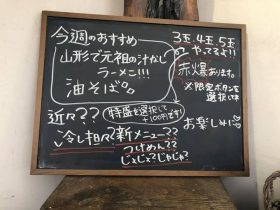 今週のおすすめ
山形で元祖の汁なし
ラーメン!!!
油そば。。
3玉、4玉、5玉
やってるよ!!
赤爆あります。
※限定ボタンを
選択して
お楽しみ
近々??
特盛を選択して
+100円です!
冷し担々?
新メニュー??
つけめん??
じょじょ?じゃじゃ?